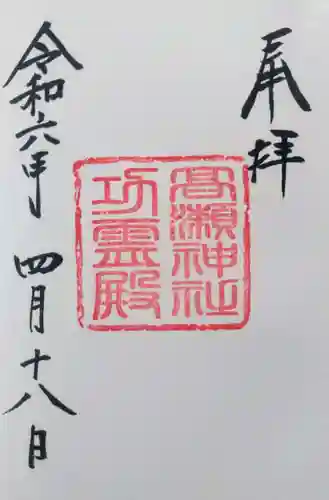 奉拝
高瀬神社
功霊殿
令和六年
四月十八日